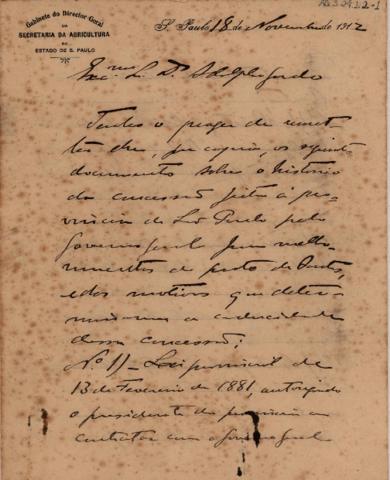 Gabinete do Director Geral
DA
SECRETARIA DA AGRICULTURA
DO
ESTADO DE S. PAULO
S. Paulo, 18 de Novembro de 1912
Exmo. Sr. Dr. Adolpho Gordo
Tenho o prazer de remet-
ter-lhe, por copia, os
documentos sobre o historico
da concessão feita á pro-
vincia de São Paulo pelo
Governo Geral para melho-
ramentos do porto de Santos,
e dos motivos que deter-
minaram a caducidade
dessa concessão:
Nº 1) - Lei provincial de
13 de Fevereiro de 1881, autorisando
o presidente da provincia a
contractar com o Governo Geral